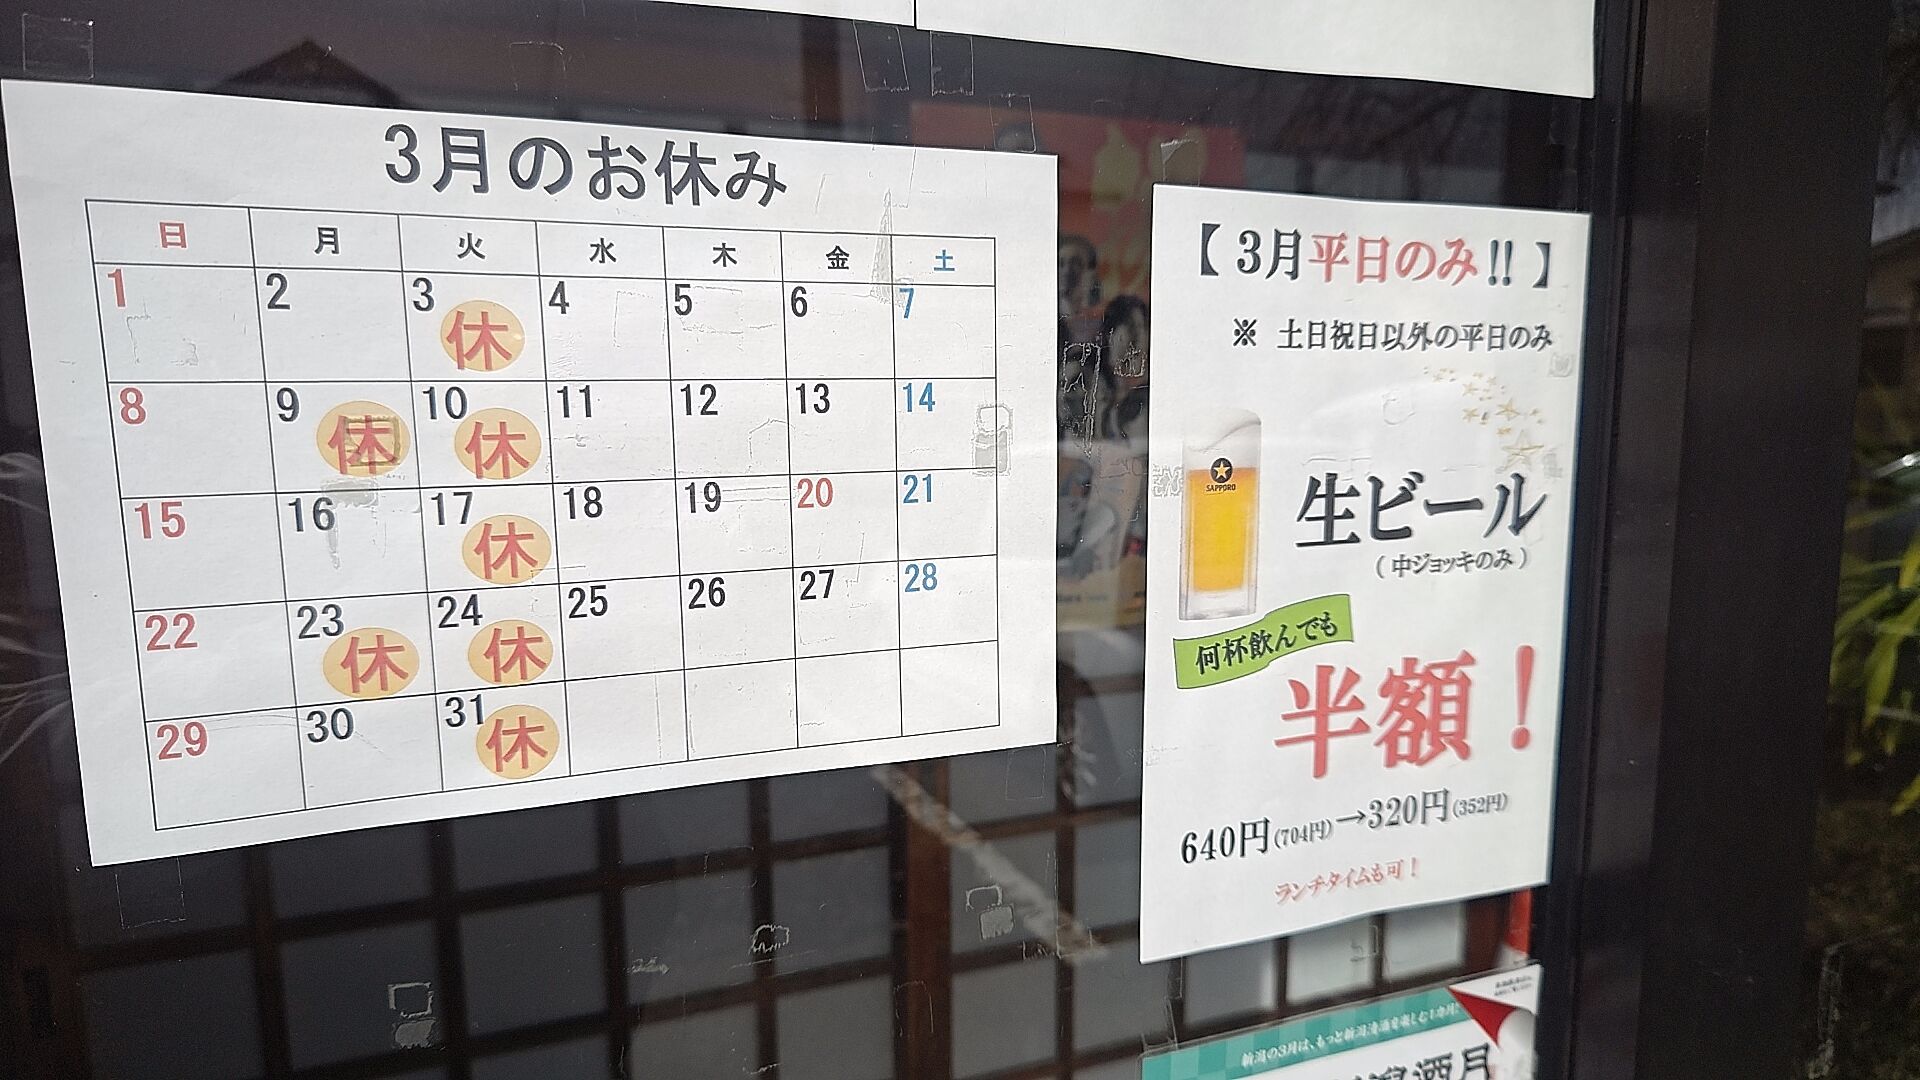 3月のお休み
日 月 火 水 木 金 土
1 2 3 4 5 6 7
休
8 9 10 11 12 13 14
休 休
15 16 17 18 19 20 21
休
22 23 24 25 26 27 28
休 休
29 30 31
休
【3月平日のみ!!】
※ 土日祝日以外の平日のみ
SAPPORO
生ビール
(中ジョッキのみ)
何杯飲んでも
半額！
640円(704円)→320円(352円)
ランチタイムも可！
新潟の3月は、もっと新潟清酒を楽しむ1カ月!
酒月